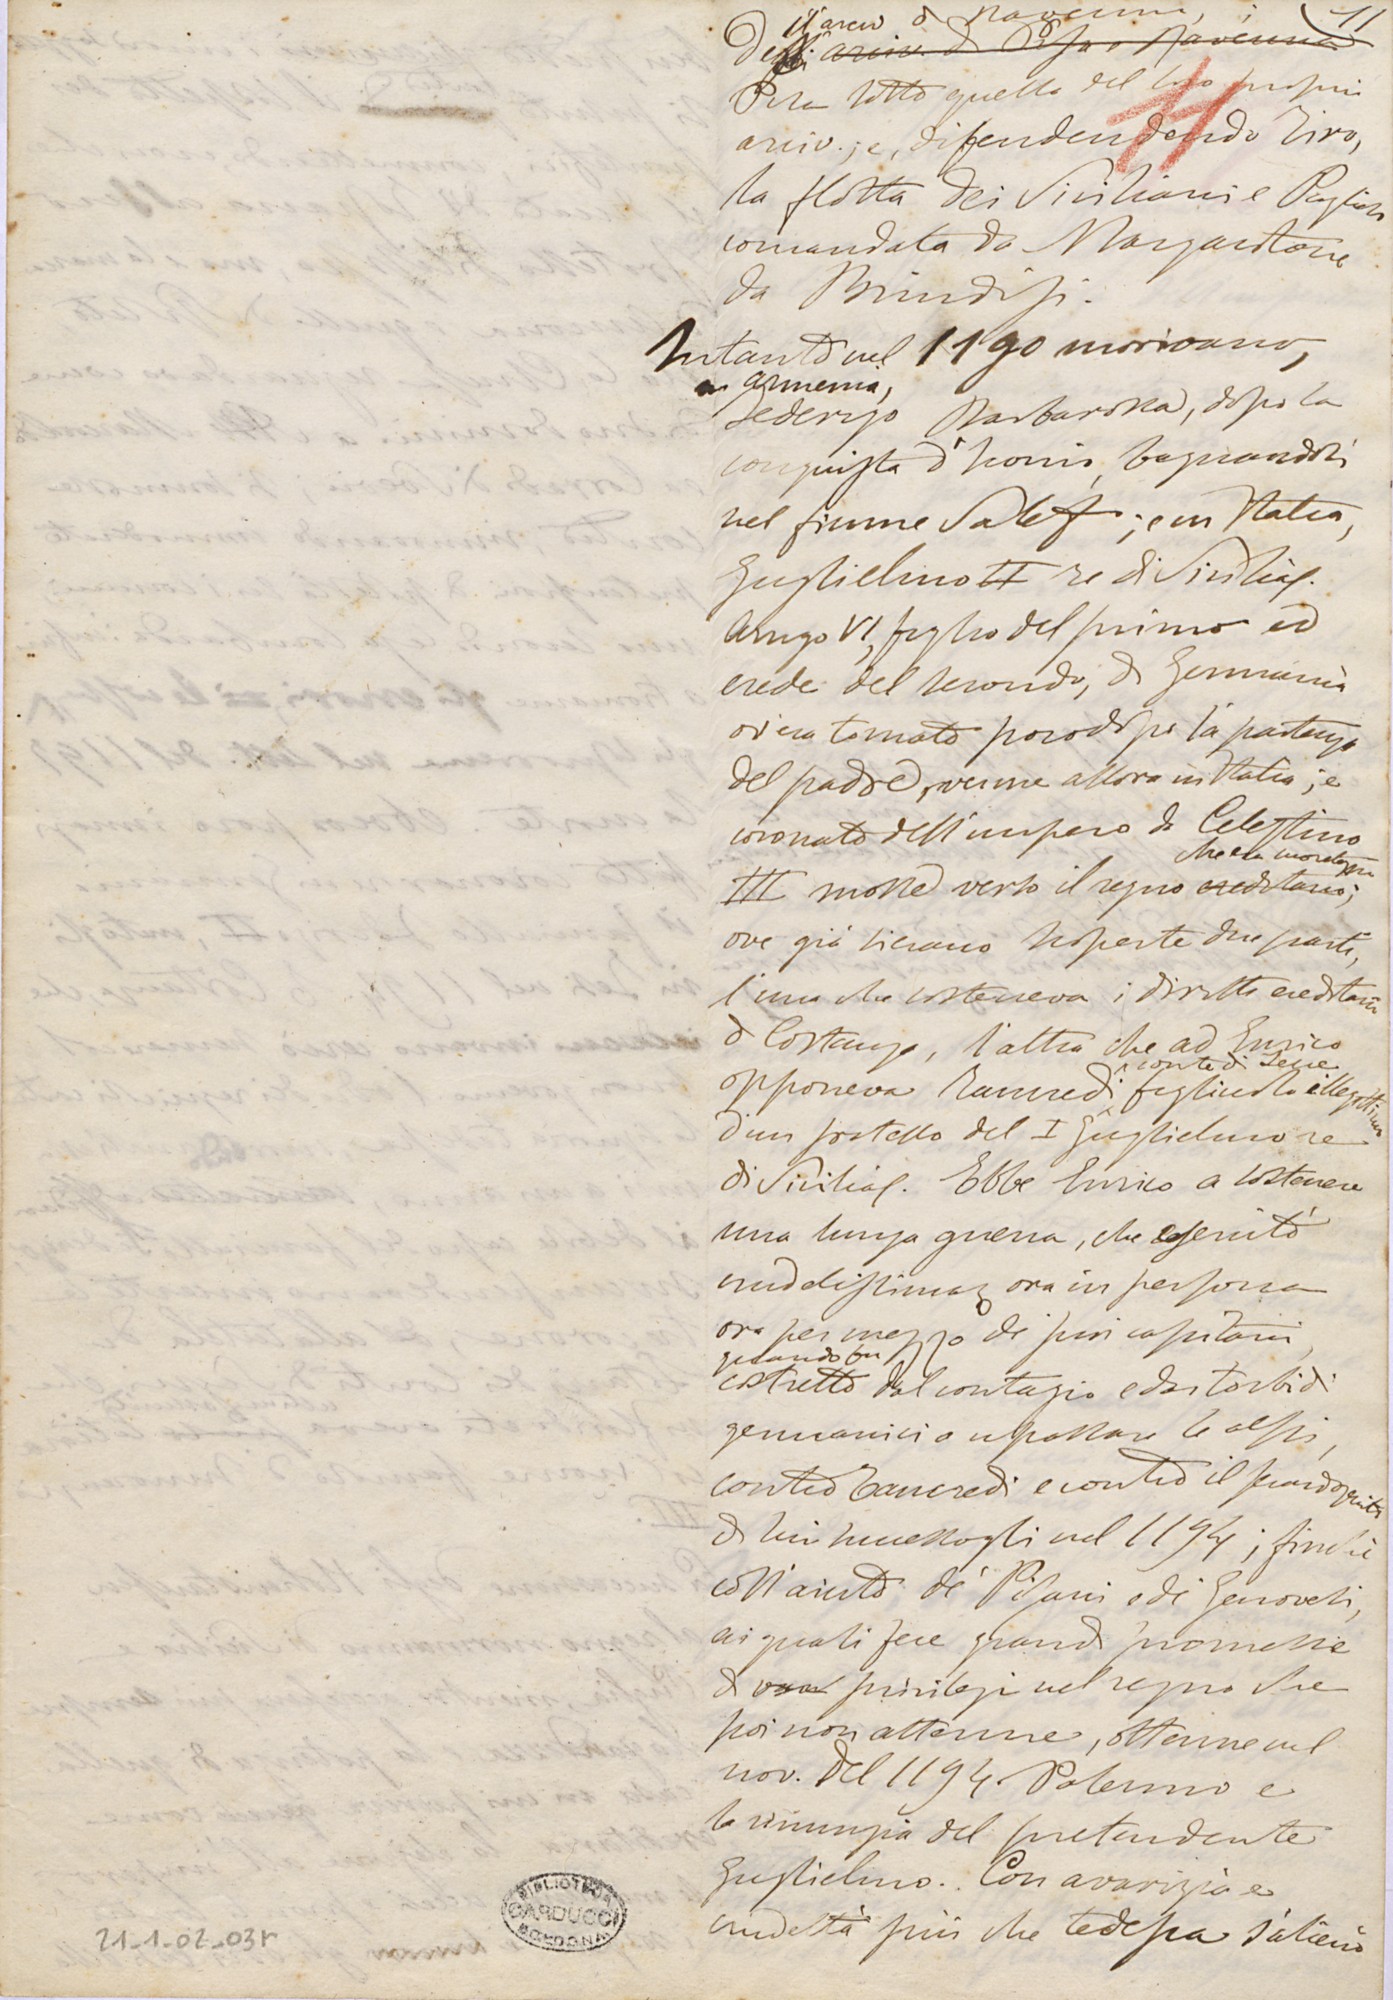 11
il arciv. di Ravenna, i
Degli arciv. di Pisa e Ravenna
Pisa sotto quello del loro propri
11
arciv.; e, difendendendo Tiro,
la flotta dei Siciliani e Pugliesi
comandata da Margaritone
da Brindisi.
Intanto nel 1190 morivano,
in Armenia,
Federigo Barbarossa, dopo la
conquista d'Iconio, bagnandosi
nel fiume Salef; e in Italia,
Guglielmo II re di Sicilia.
Arrigo VI, figlio del primo ed
erede del secondo, di Germania
ov'era tornato poco dopo la partenza
del padre, venne allora in Italia; e
coronato dell'impero da Celestino
III mosse verso il regno ereditario;
che era
ove già s'erano scoperte due parti,
l'una che sosteneva i diritti ereditarii
di Costanza, l'altra che ad Enrico
opponeva Tancredi figliuolo illegittimo
conte di Lecce
d'un fratello del I Guglielmo re
di Sicilia. Ebbe Enrico a sostenere
una lunga guerra, che esercitò
crudelissima ora in persona
ora per mezzo de' suoi capitani,
quando fu
costretto dal contagio e dai torbidi
germanici a ripassare le alpi,
contro Tancredi e contro il secondogenito
di lui succedutogli nel 1194; finchè
coll'aiuto de' Pisani e de' Genovesi,
ai quali fece grandi promesse
di privilegi nel regno che
poi non attenne, ottenne nel
nov. del 1194 Palermo e
la rinunzia del pretendente
Guglielmo. Con avarizia e
crudeltà più che tedesca
BIBLIOTECA
CARDUCCI
BOLOGNA
21_1_02_03r